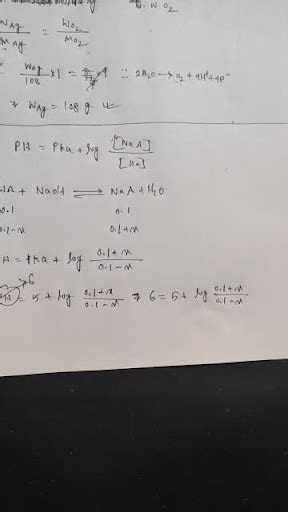 W. O₂
W_Ag / M_Ag = W_O₂ / M_O₂
W_Ag / 108 × 1 = 8 ∵ 2H₂O → O₂ + 4H⁺ + 4e⁻
W_Ag = 108 g
PH = Pka + log [NaA] / [HA]
HA + NaOH ⇌ NaA + H₂O
0.1 0.1
0.1-x 0.1+x
H = Pka + log 0.1+x / 0.1-x
6
PH = 5 + log 0.1+x / 0.1-x ⇒ 6 = 5 + log 0.1+x / 0.1-x